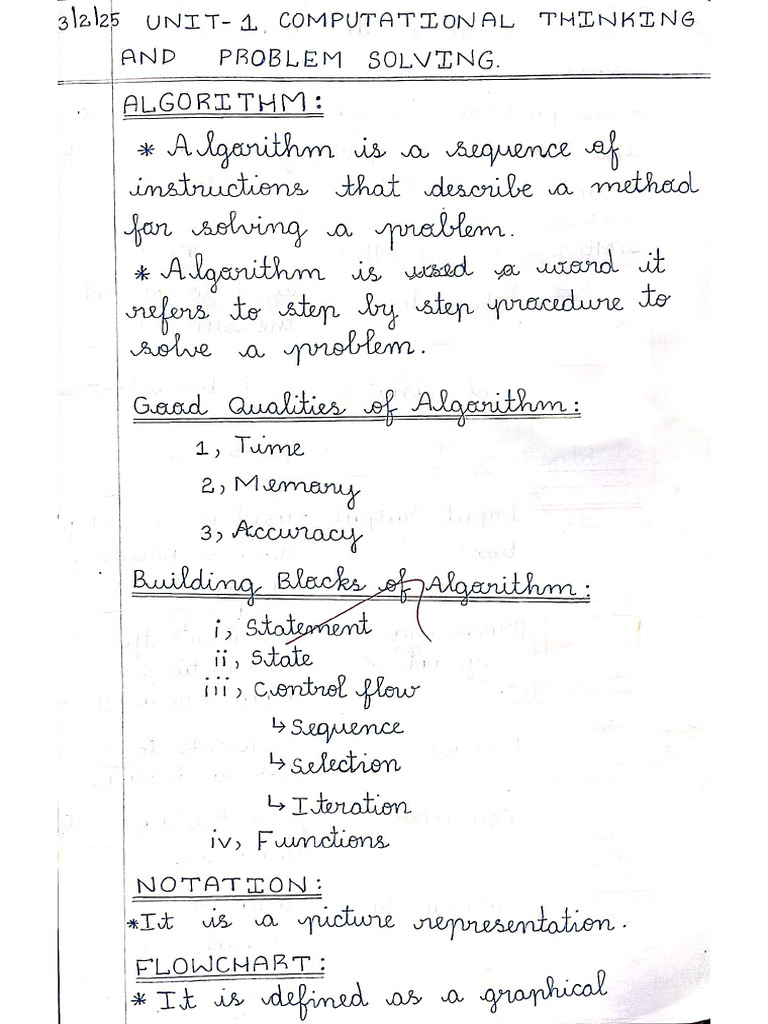 3/2/25 UNIT-1. COMPUTATIONAL THINKING
AND PROBLEM SOLVING.
ALGORITHM:
* Algorithm is a sequence of
instructions that describe a method
for solving a problem.
* Algorithm is used a word it
refers to step by step procedure to
solve a problem.
Good Qualities of Algorithm:
1, Time
2, Memory
3, Accuracy
Building Blocks of Algorithm:
i, Statement
ii, State
iii, Control flow
↳ Sequence
↳ Selection
↳ Iteration
iv, Functions
NOTATION:
*It is a picture representation.
FLOWCHART:
* It is defined as a graphical